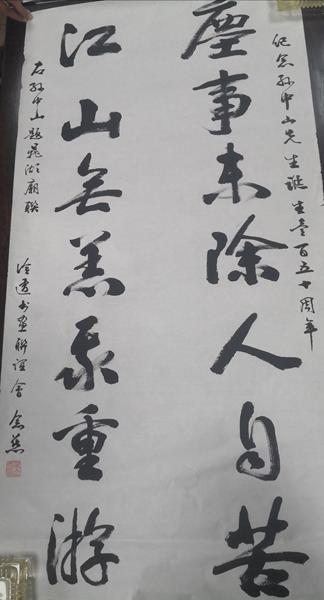 纪念孙中山先生诞生壹百五十周年
塵事未除人自苦
江山無恙我重游
右孙中山题鼎湖廟联
冷遹书画联谊会